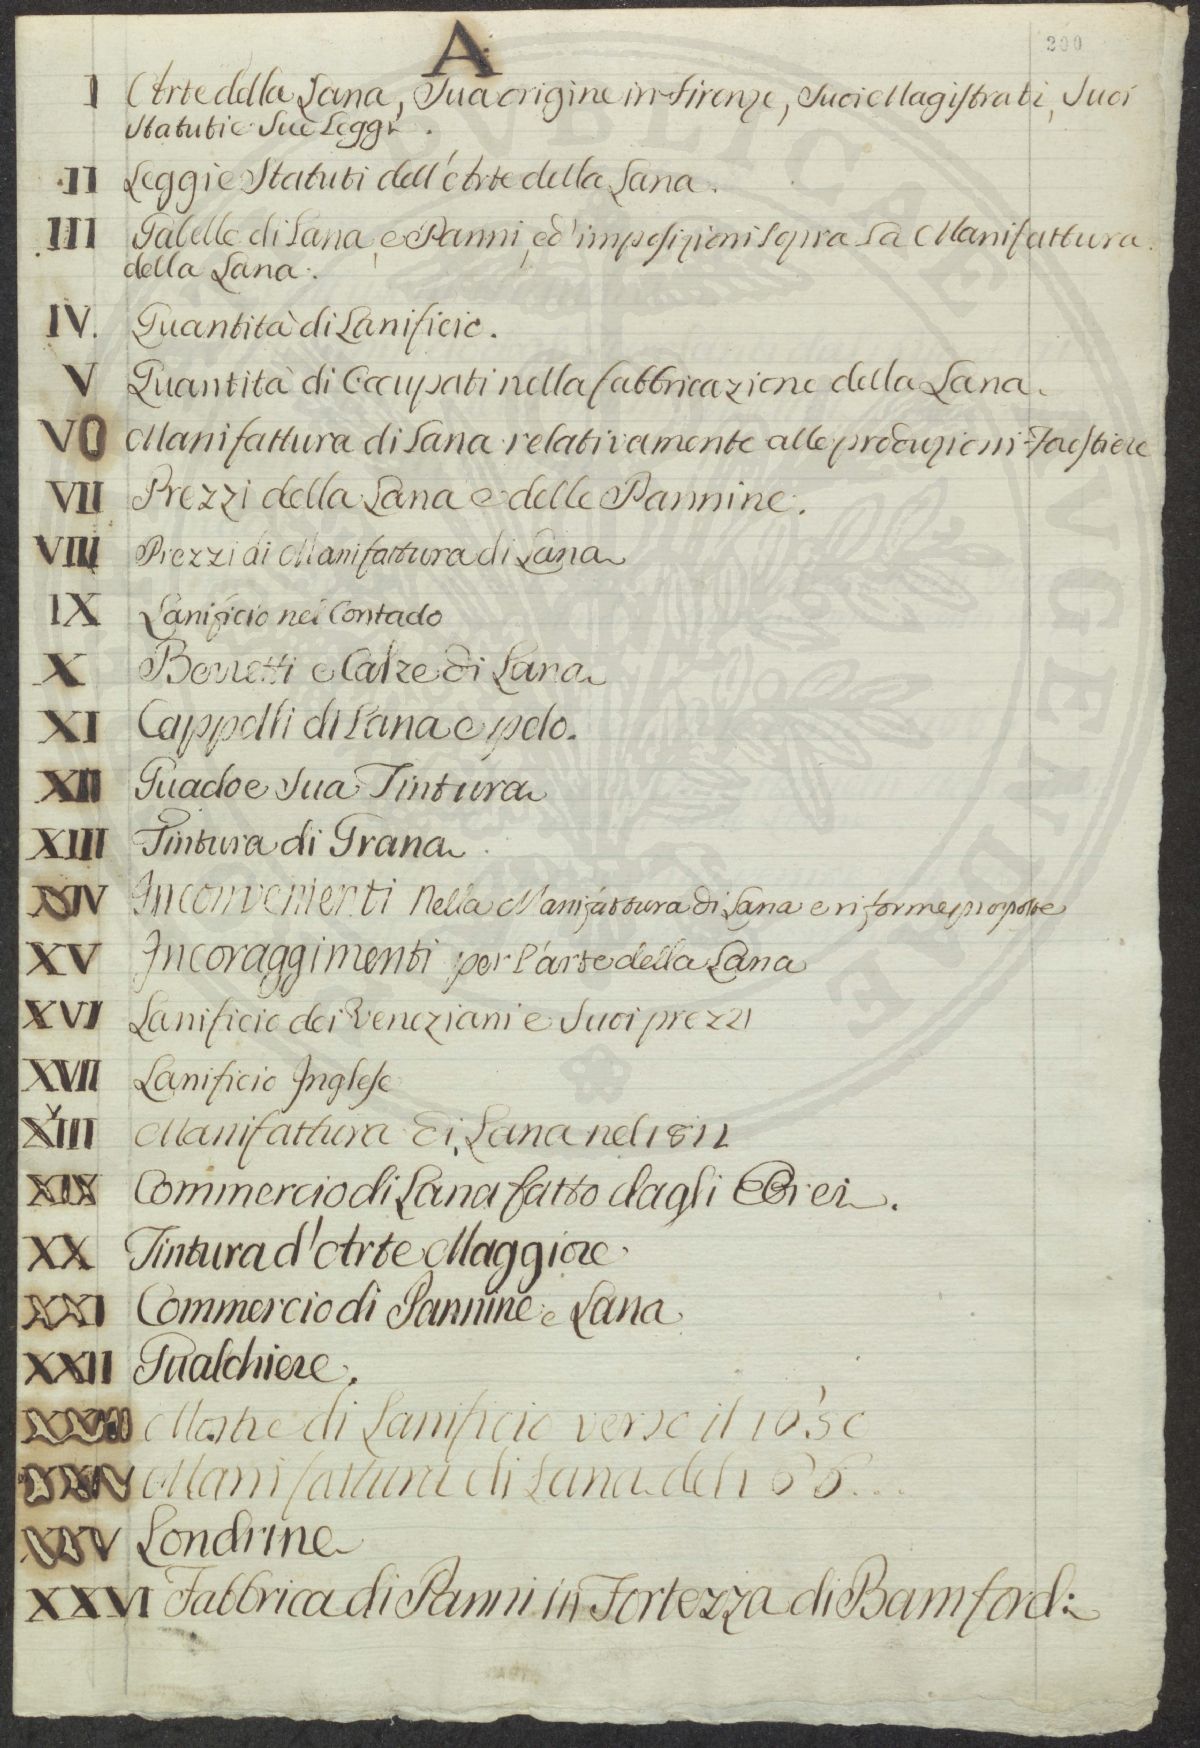 A
200
I Arte della Lana, Sua origine in Firenze, Suoi Magistrati, Suoi
Statuti e Sue Leggi.
II Leggi e Statuti dell'Arte della Lana.
III Gabelle di Lana, e Panni, ed' imposizioni sopra La Manifattura
della Lana.
IV. Quantità di Lanificio.
V Quantità di Occupati nella fabbricazione della Lana.
VI Manifattura di Lana relativamente alle produzioni Forestiere
VII Prezzi della Lana e delle Pannine.
VIII Prezzi di Manifattura di Lana
IX Lanificio nel Contado
X Berretti e Calze di Lana
XI Cappelli di Lana e pelo.
XII Guado e Sua Tintura
XIII Tintura di Grana
XIV Inconvenienti Nella Manifattura di Lana e riforme proposte
XV Incoraggimenti per l'arte della Lana
XVI Lanificio dei Veneziani e Suoi prezzi
XVII Lanificio Inglese
XVIII Manifattura di Lana nel 1811
XIX Commercio di Lana fatto dagli Ebrei.
XX Tintura d'Arte Maggiore
XXI Commercio di Pannine e Lana
XXII Gualchiere.
XXIII Mostre di Lanificio verso il 1650
XXIV Manifattura di Lana del 166...
XXV Londrine
XXVI Fabbrica di Panni in Fortezza di Bamford:
PVBLICAE
AVGENDAE